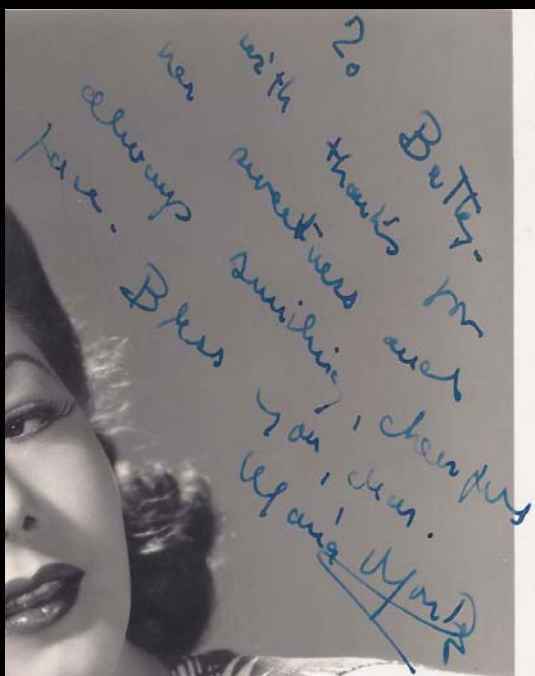 To Bettey-
with thanks for
her sweetness and
always smiling, cheerful
face. Bless you, dear.
Maria Montez